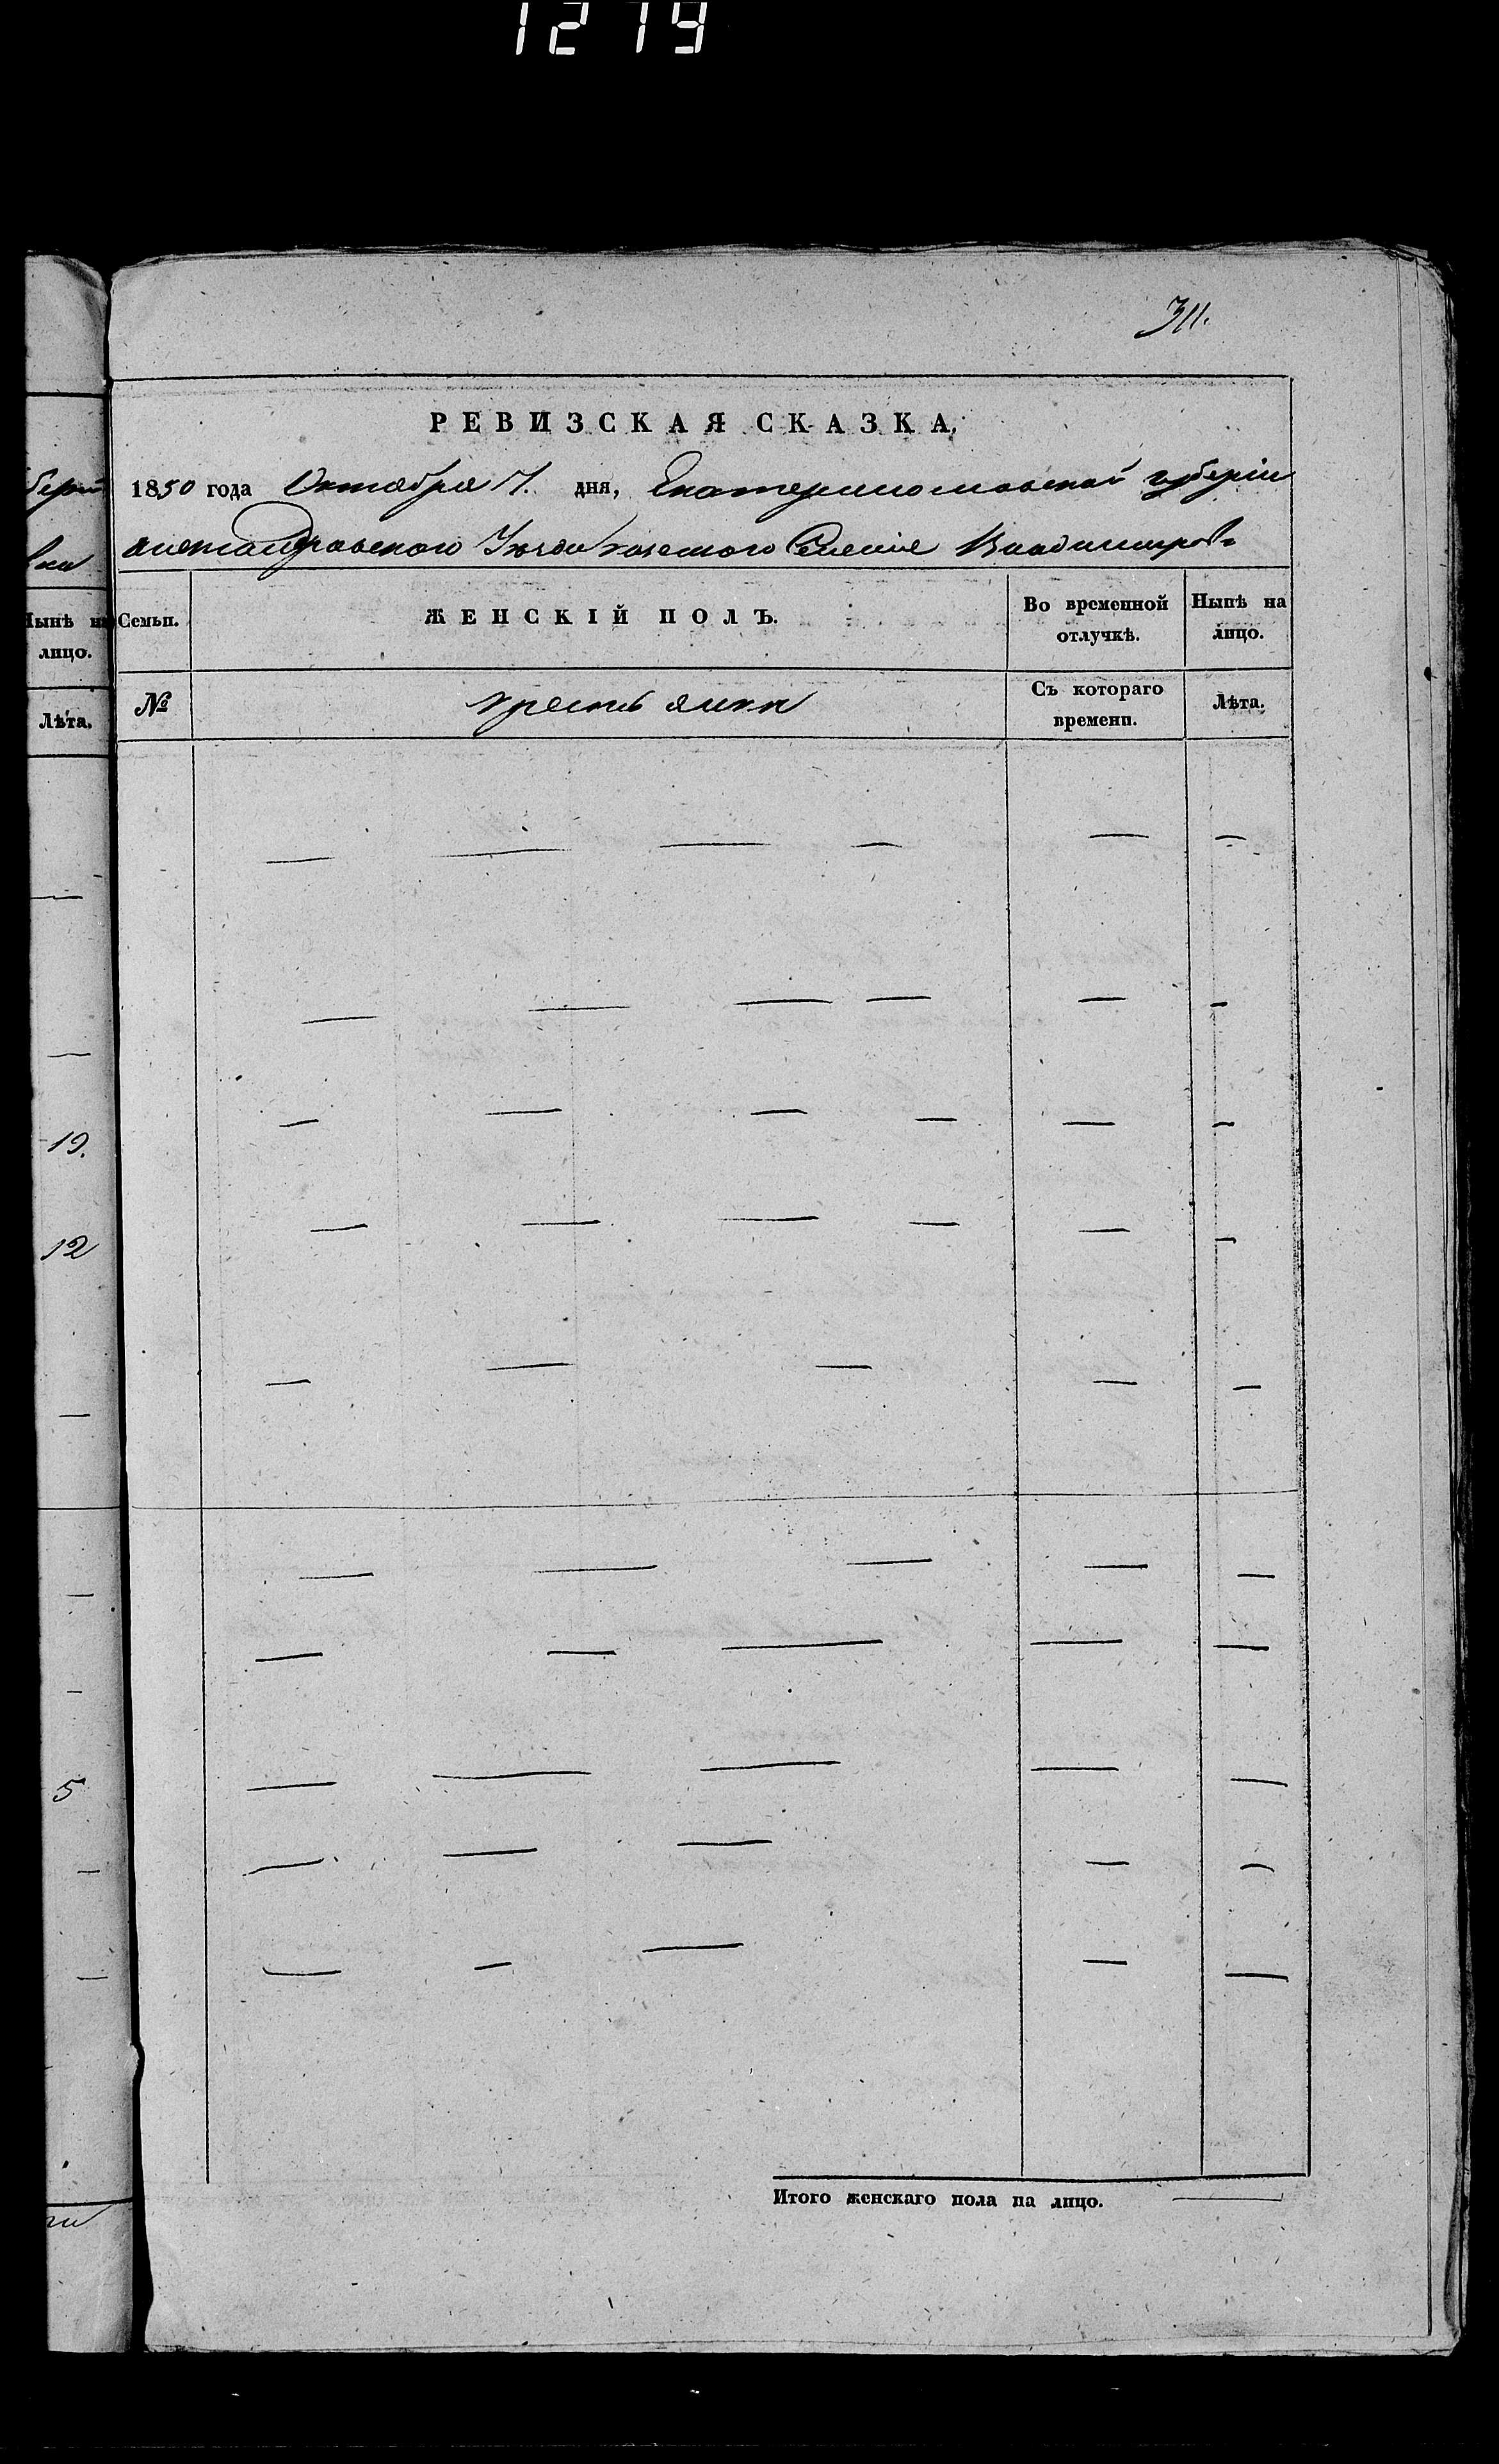 1279
311.
РЕВИЗСКАЯ СКАЗКА,
1850 года Октября 7. дня, Екатеринославской губерніи
Александровского Уезда казенного Селенія Владимиров-
Нынѣ на лицо.
Лѣта.
19.
12
5
Семьи.
ЖЕНСКІЙ ПОЛЪ.
Во временной отлучкѣ.
Нынѣ на лицо.
№
крестьянки
Съ котораго времени.
Лѣта.
Итого женскаго пола на лицо.